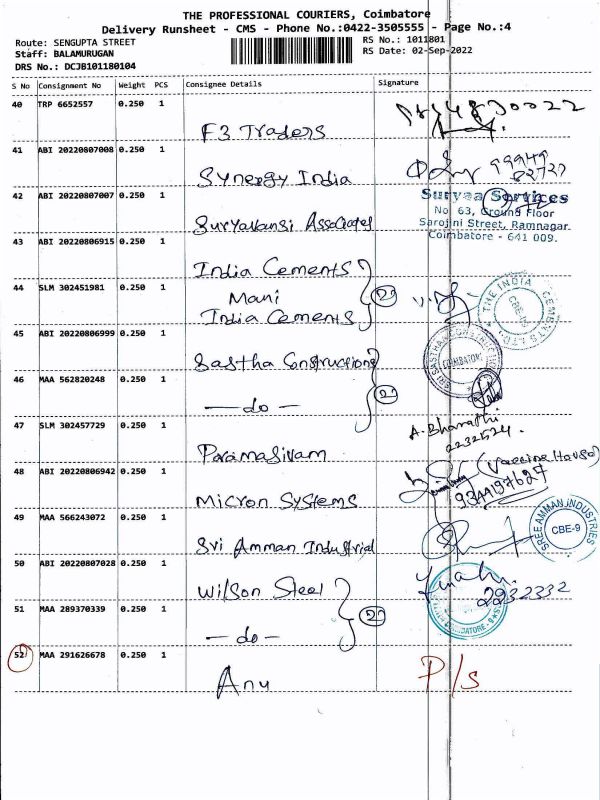 THE PROFESSIONAL COURIERS, Coimbatore
Delivery Runsheet - CMS - Phone No.:0422-3505555 - Page No.:4
Route: SENGUPTA STREET
Staff: BALAMURUGAN
DRS No.: DCJB101180104
RS No.: 1011801
RS Date: 02-Sep-2022
S No Consignment No Weight PCS Consignee Details Signature
40 TRP 6652557 0.250 1
F3 Traders
41 ABI 20220807008 0.250 1
Synergy India
42 ABI 20220807007 0.250 1
Suryavansi Associates
Suryaa Services
No 63, Ground Floor
Sarojini Street, Ramnagar
Coimbatore - 641 009.
43 ABI 20220806915 0.250 1
India Cements
44 SLM 302451981 0.250 1
Mani
India Cements
THE INDIA CEMENTS LTD
45 ABI 20220806999 0.250 1
Sastha Constructions
COIMBATORE
46 MAA 562820248 0.250 1
-do-
47 SLM 302457729 0.250 1
Paramasivam
A. Bharathi
2232524.
48 ABI 20220806942 0.250 1
Micron Systems
(Vaccine House)
9344197627
49 MAA 566243072 0.250 1
Sri Amman Industrial
SREE AMMAN INDUSTRIES
CBE-9
50 ABI 20220807028 0.250 1
Wilson Steel
2232332
51 MAA 289370339 0.250 1
-do-
52 MAA 291626678 0.250 1
Anu
P/s